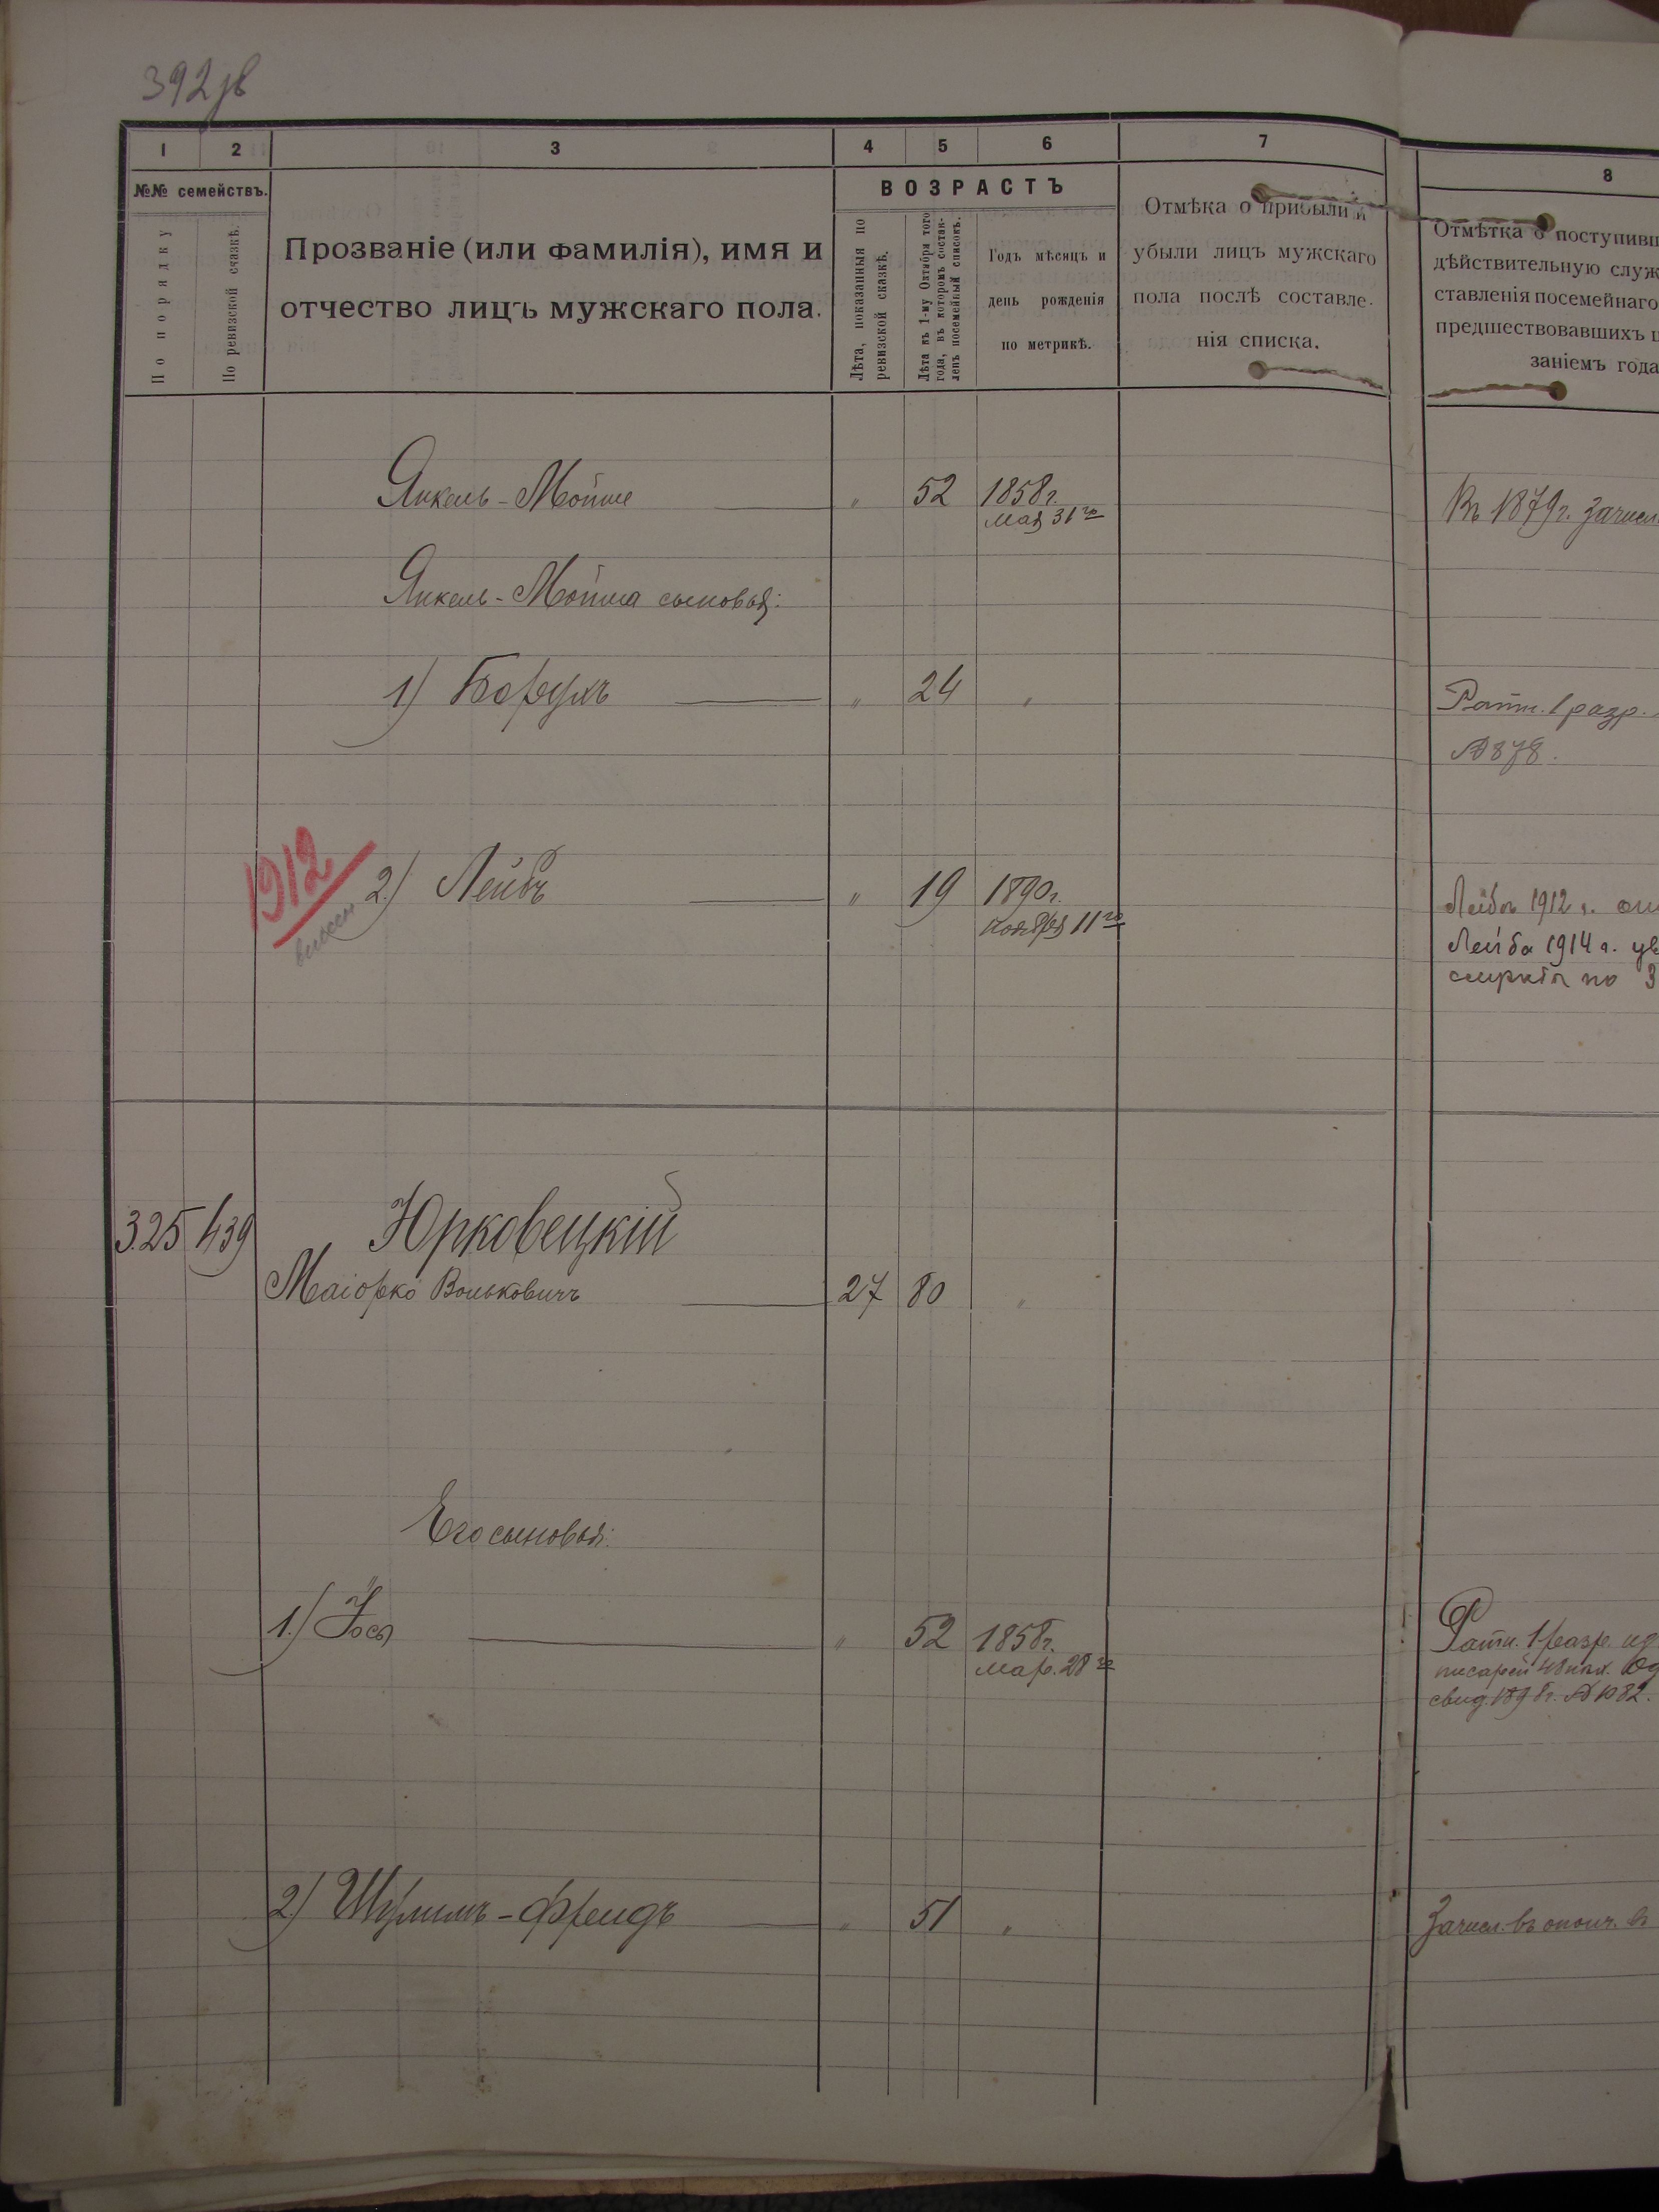 392 зв
1 2 3 4 5 6 7 8
№№ семействъ.
По порядку
По ревизской сказкѣ.
Прозваніе (или фамилія), имя и
отчество лицъ мужскаго пола.
ВОЗРАСТЪ
Лѣта, показанныя по
ревизской сказкѣ.
Лѣта къ 1-му Октября того
года, въ которомъ состав-
ленъ посемейный списокъ.
Годъ мѣсяцъ и
день рожденія
по метрикѣ.
Отмѣка о прибыли и
убыли лицъ мужскаго
пола послѣ составле-
нія списка.
Отмѣтка о поступивш
дѣйствительную служ
ставленія посемейнаго
предшествовавшихъ
заніемъ года
Янкель-Мойше " 52 1858г.
мая 31го
Въ 1879г. Зачисл
Янкель-Мойша сыновья:
1) Борухъ " 24 "
Ратн. 1 разр.
№878.
1912
внесен
2) Лейбъ " 19 1890г.
ноября 11го
Лейба 1912 г.
Лейба 1914 г. ув
по 3
325 439 Юрковецкій
Маіорко Вольковичъ 27 80 "
Его сыновья:
1.) Іось " 52 1858г.
мар. 28го
Ратн. 1 разр.
писарей
свид. 1898г. №1082.
2) Шулимъ-Фроидъ " 51 "
Зачисл. въ ополч. въ